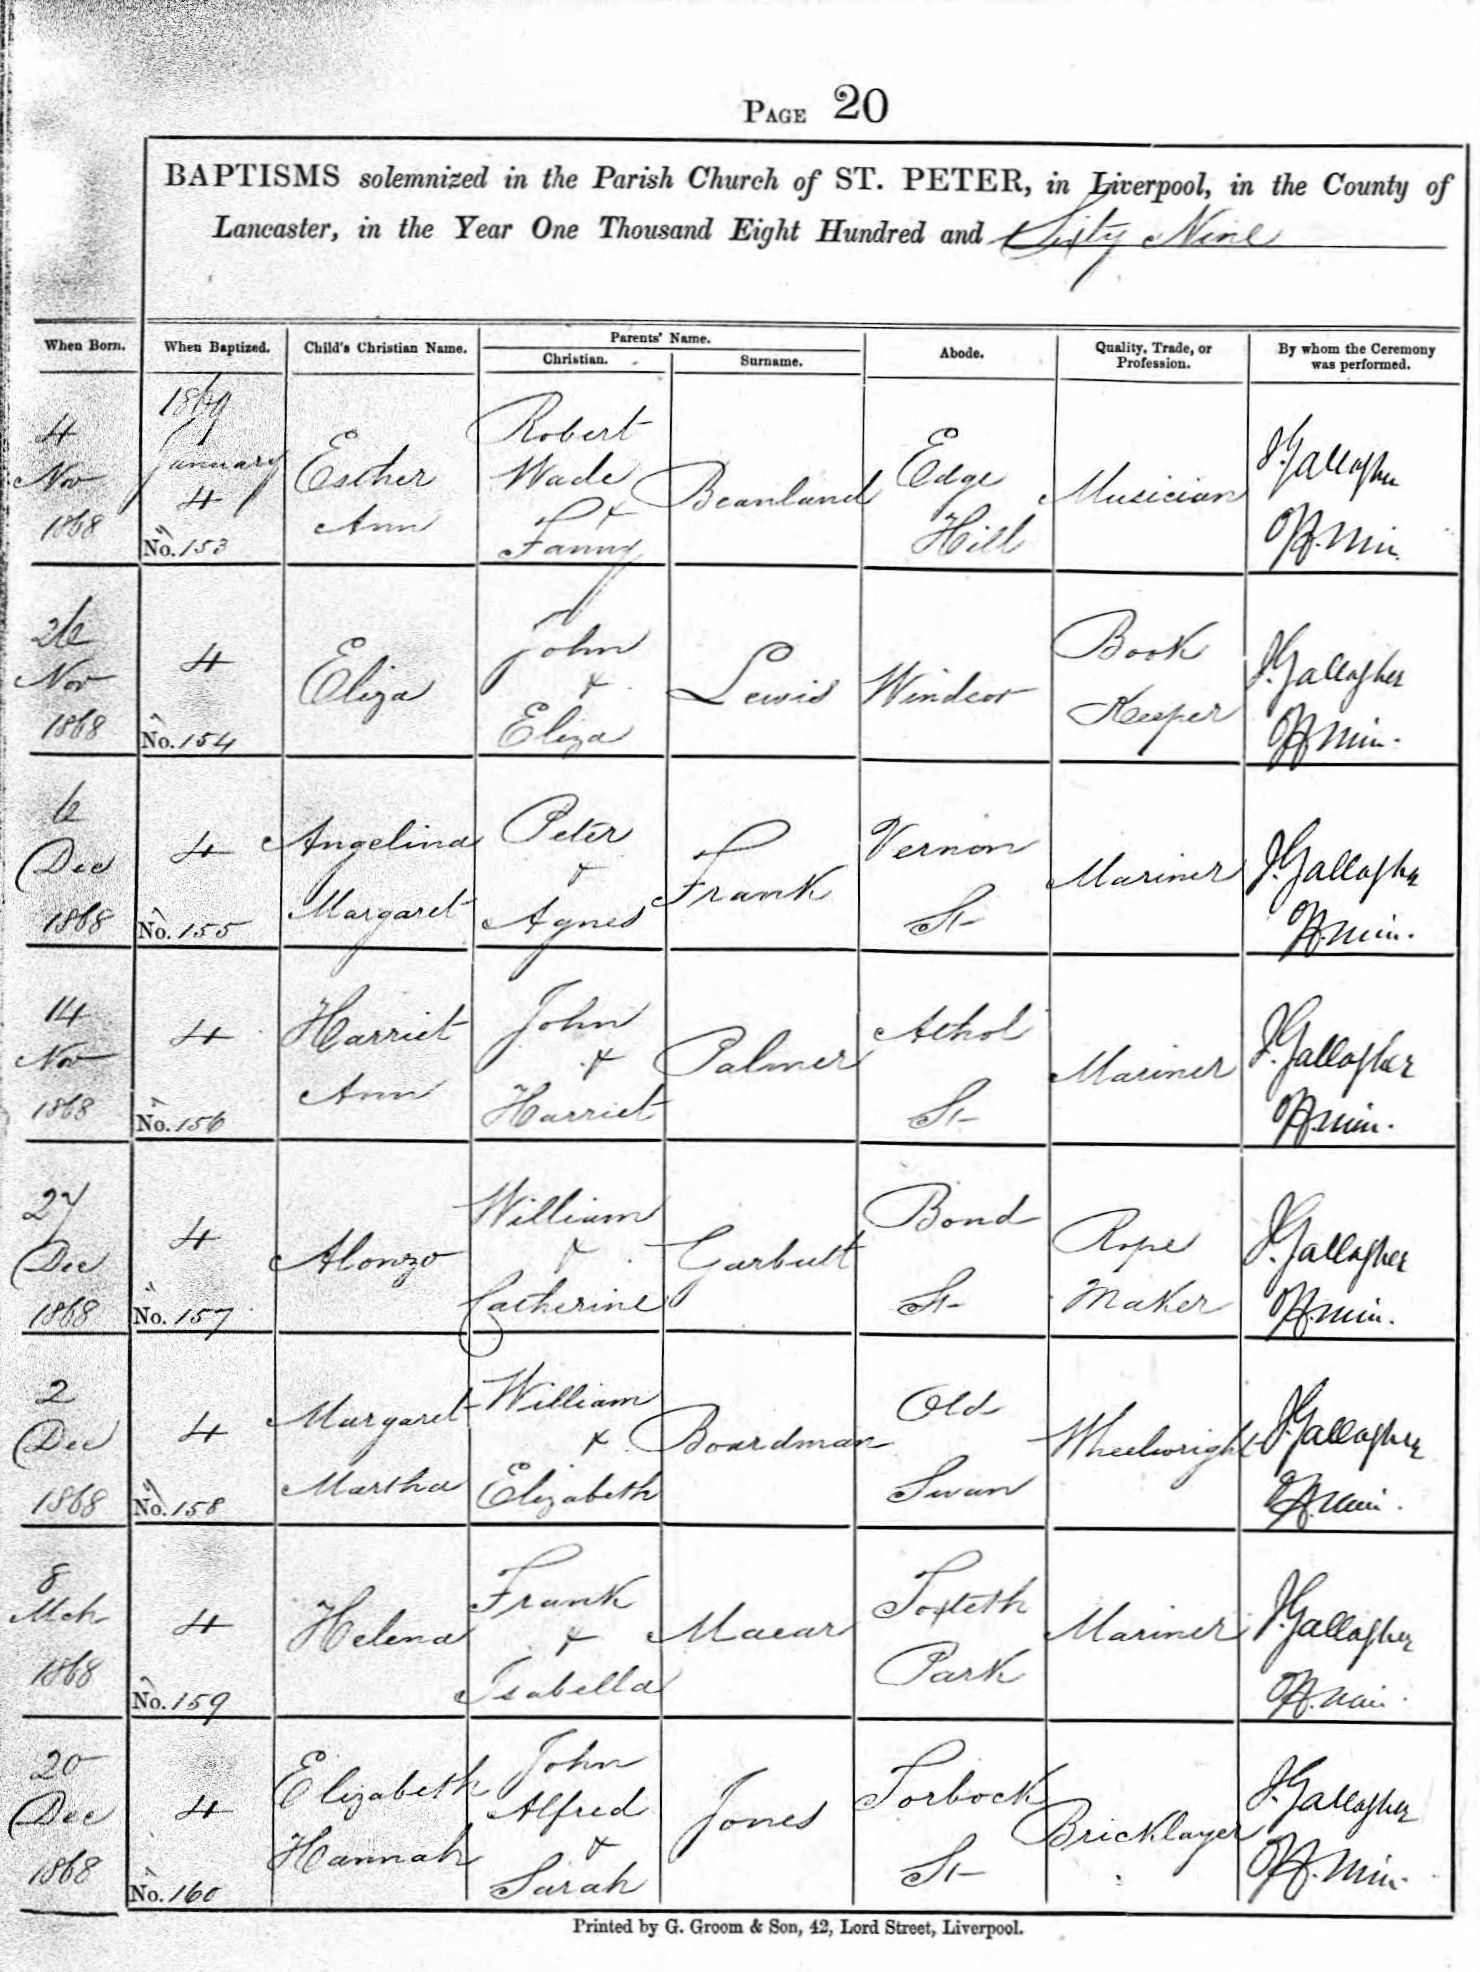 PAGE 20
BAPTISMS solemnized in the Parish Church of ST. PETER, in Liverpool, in the County of
Lancaster, in the Year One Thousand Eight Hundred and Sixty Nine
When Born.
When Baptized.
Child's Christian Name.
Parents' Name.
Christian.
Surname.
Abode.
Quality, Trade, or
Profession.
By whom the Ceremony
was performed.
4
Nov
1868
1869
January
4
No. 153
Esther
Ann
Robert
Wade
&
Fanny
Beanland
Edge
Hill
Musician
J. Gallagher
Min.
26
Nov
1868
4
No. 154
Eliza
John
&
Eliza
Lewis
Windsor
Book
Keeper
J. Gallagher
Min.
6
Dec
1868
4
No. 155
Angelina
Margaret
Peter
&
Agnes
Frank
Vernon
St
Mariner
J. Gallagher
Min.
14
Nov
1868
4
No. 156
Harriet
Ann
John
&
Harriet
Palmer
Athol
St
Mariner
J. Gallagher
Min.
27
Dec
1868
4
No. 157
Alonzo
William
&
Catherine
Garbutt
Bond
St
Rope
Maker
J. Gallagher
Min.
2
Dec
1868
4
No. 158
Margaret
Martha
William
&
Elizabeth
Boardman
Old
Swan
Wheelwright
J. Gallagher
Min.
8
Mch
1868
4
No. 159
Helena
Frank
&
Isabella
Macar
Toxteth
Park
Mariner
J. Gallagher
Min.
20
Dec
1868
4
No. 160
Elizabeth
Hannah
John
Alfred
&
Sarah
Jones
Torbock
St
Bricklayer
J. Gallagher
Min.
Printed by G. Groom & Son, 42, Lord Street, Liverpool.